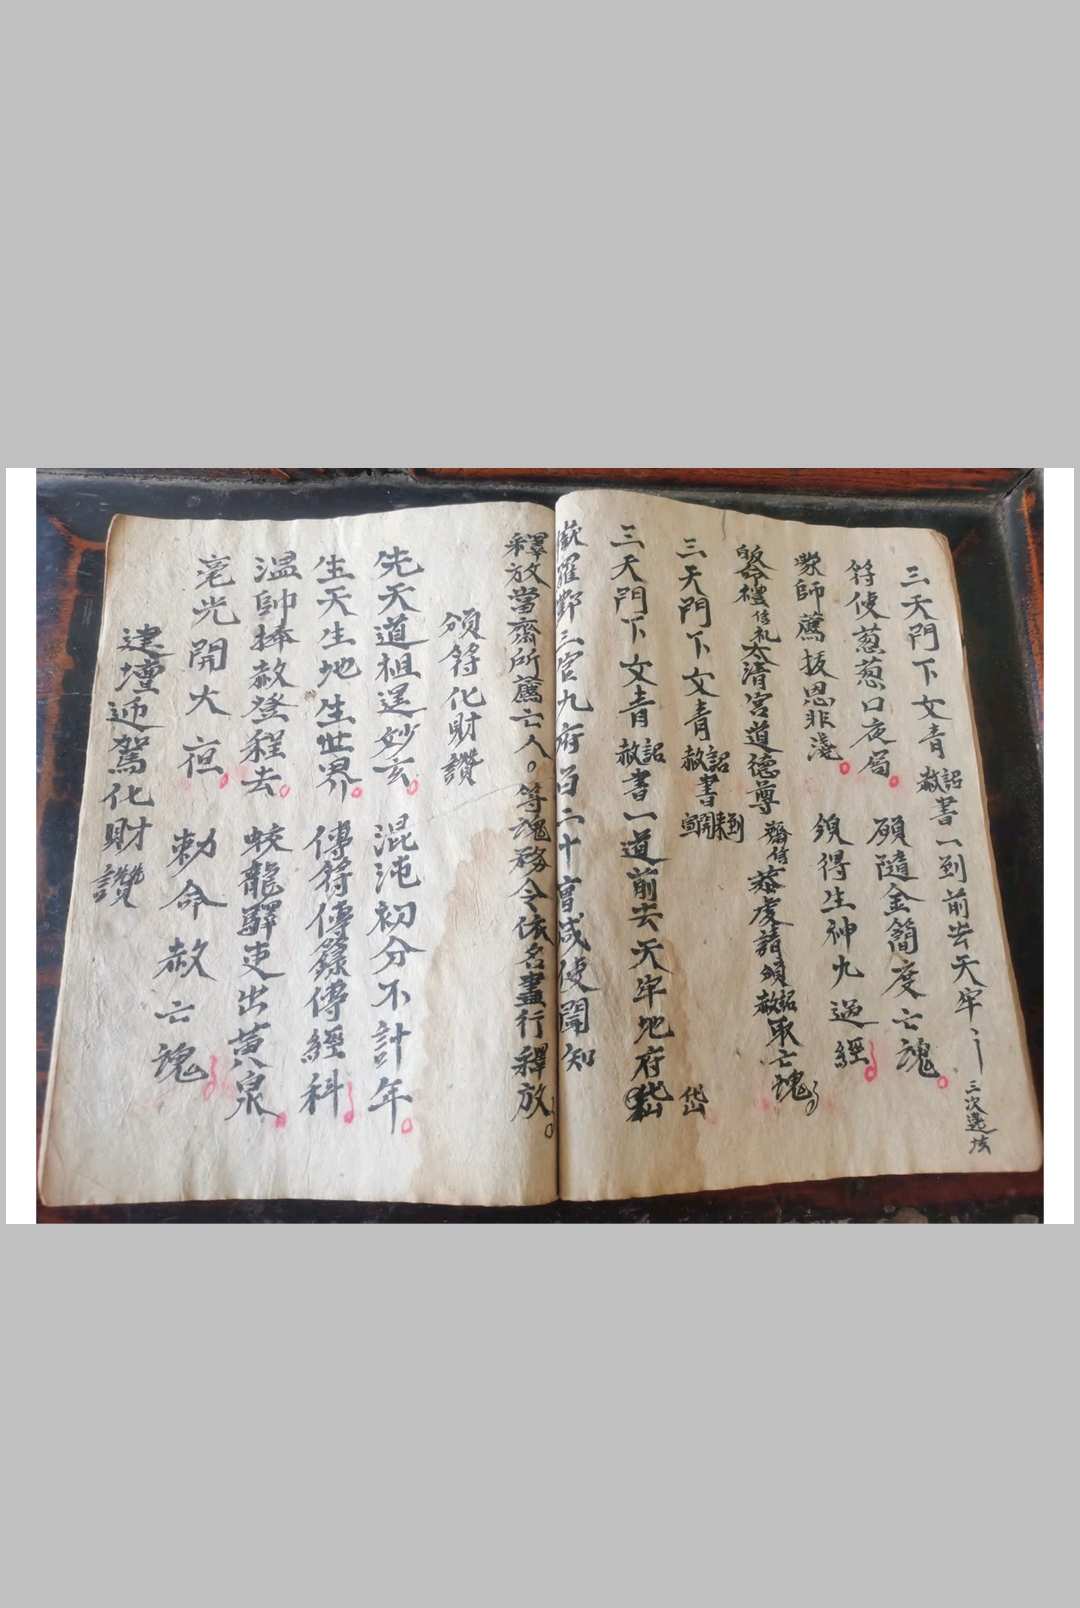 三天門下女青詔赦書一到前去天牢三次送
符使葱葱口夜局 願隨金簡度亡魂
蒙師薦拔恩非淺 須得生神九過經
皈命禮信礼太清宮道德尊 齋信恭虔請頒詔赦取亡魂
三天門下女青詔赦書到来開宣
三天門下女青詔赦書一道前去天牢地府岱
嶽羅酆三官九府百二十曹咸使聞知
釋放當齋所薦亡人等魂務令依名盡行釋放
頒符化財讚
先天道祖逞妙玄 混沌初分不計年
生天生地生世界 傳符傳籙傳經科
溫帥捧赦登程去 蛟龍驛吏出黃泉
毫光開大 勅命赦亡魂
建壇逓駕化財讚